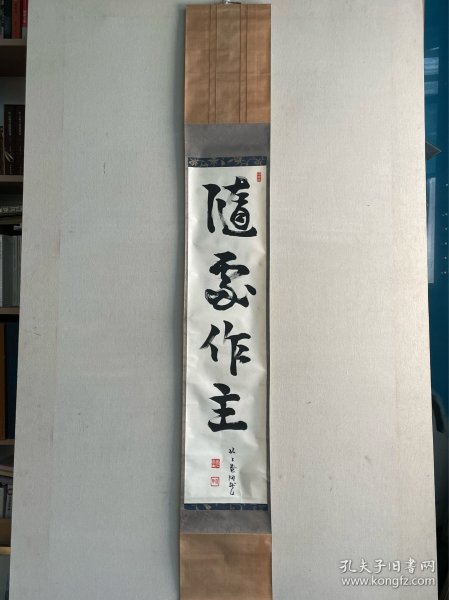 隨處作主
孔夫子旧书网
www.kongfz.com